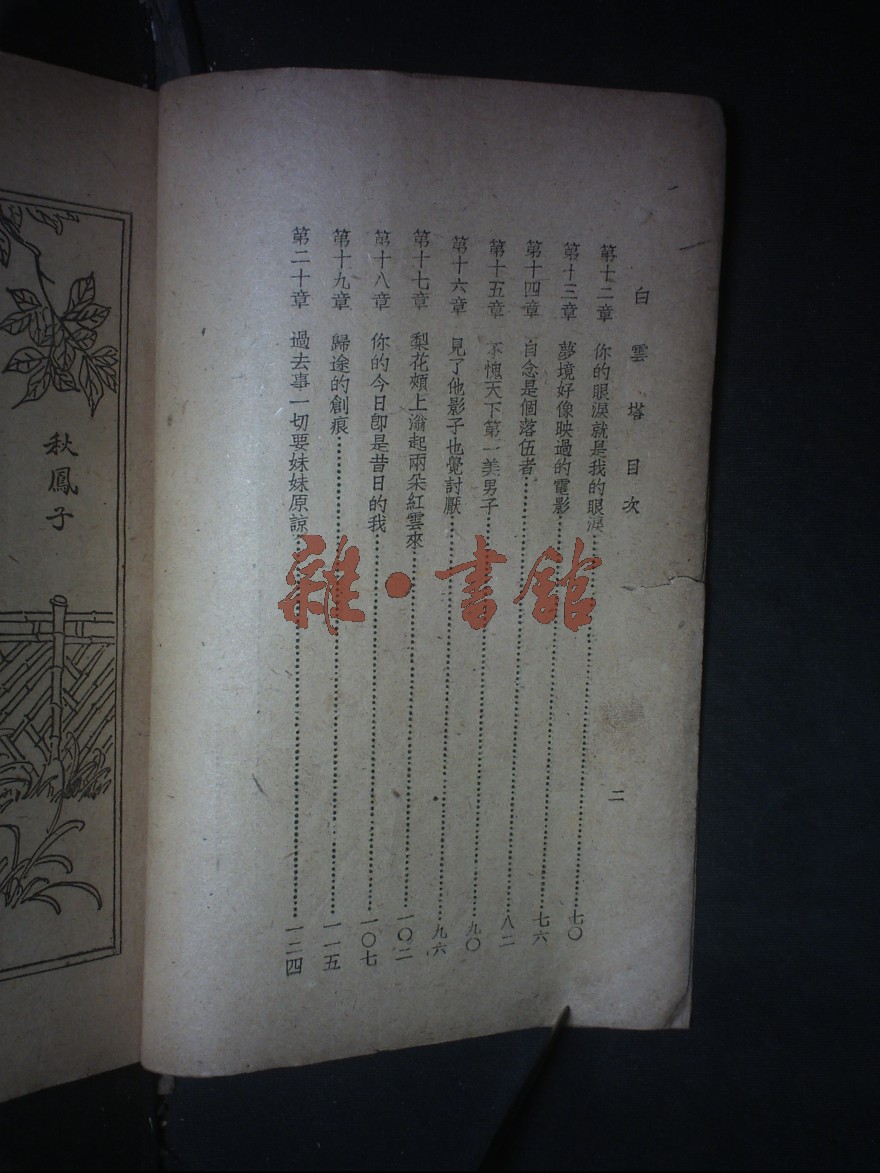 白雲塔目次
二
第十二章 你的眼淚就是我的眼淚 七〇
第十三章 夢境好像映過的電影 七六
第十四章 自念是個落伍者 八二
第十五章 不愧天下第一美男子 九〇
第十六章 見了他影子也覺討厭 九六
第十七章 梨花頰上滃起兩朵紅雲來 一〇二
第十八章 你的今日卽是昔日的我 一〇七
第十九章 歸途的創痕 一一五
第二十章 過去事一切要妹妹原諒 一二四
秋鳳子
雜·書館